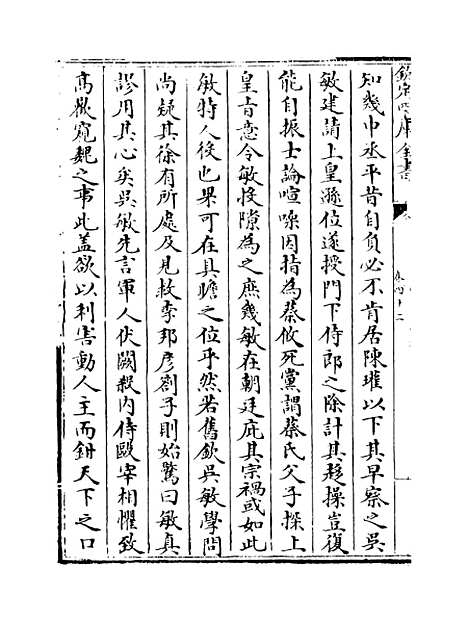 欽定四庫全書
卷四十二
知幾中丞平昔自負必不肯居陳瓘以下其早察之吳
敏建請上皇遜位遂授門下侍郎之除計其趍操豈復
能自振士論喧噪因指為蔡攸死黨謂蔡氏父子探上
皇旨意令敏投隙為之庶幾敏在朝廷庇其宗禍或如此
敏特人役也果可在具瞻之位乎然若舊欽吳敏學問
尚疑其徐有所處及見救李邦彥劄子則始驚曰敏真
謬用其心矣吳敏先言軍人伏闕殺内侍毆宰相懼致
髙歡窺魏之事此盖欲以利害動人主而鉗天下之口